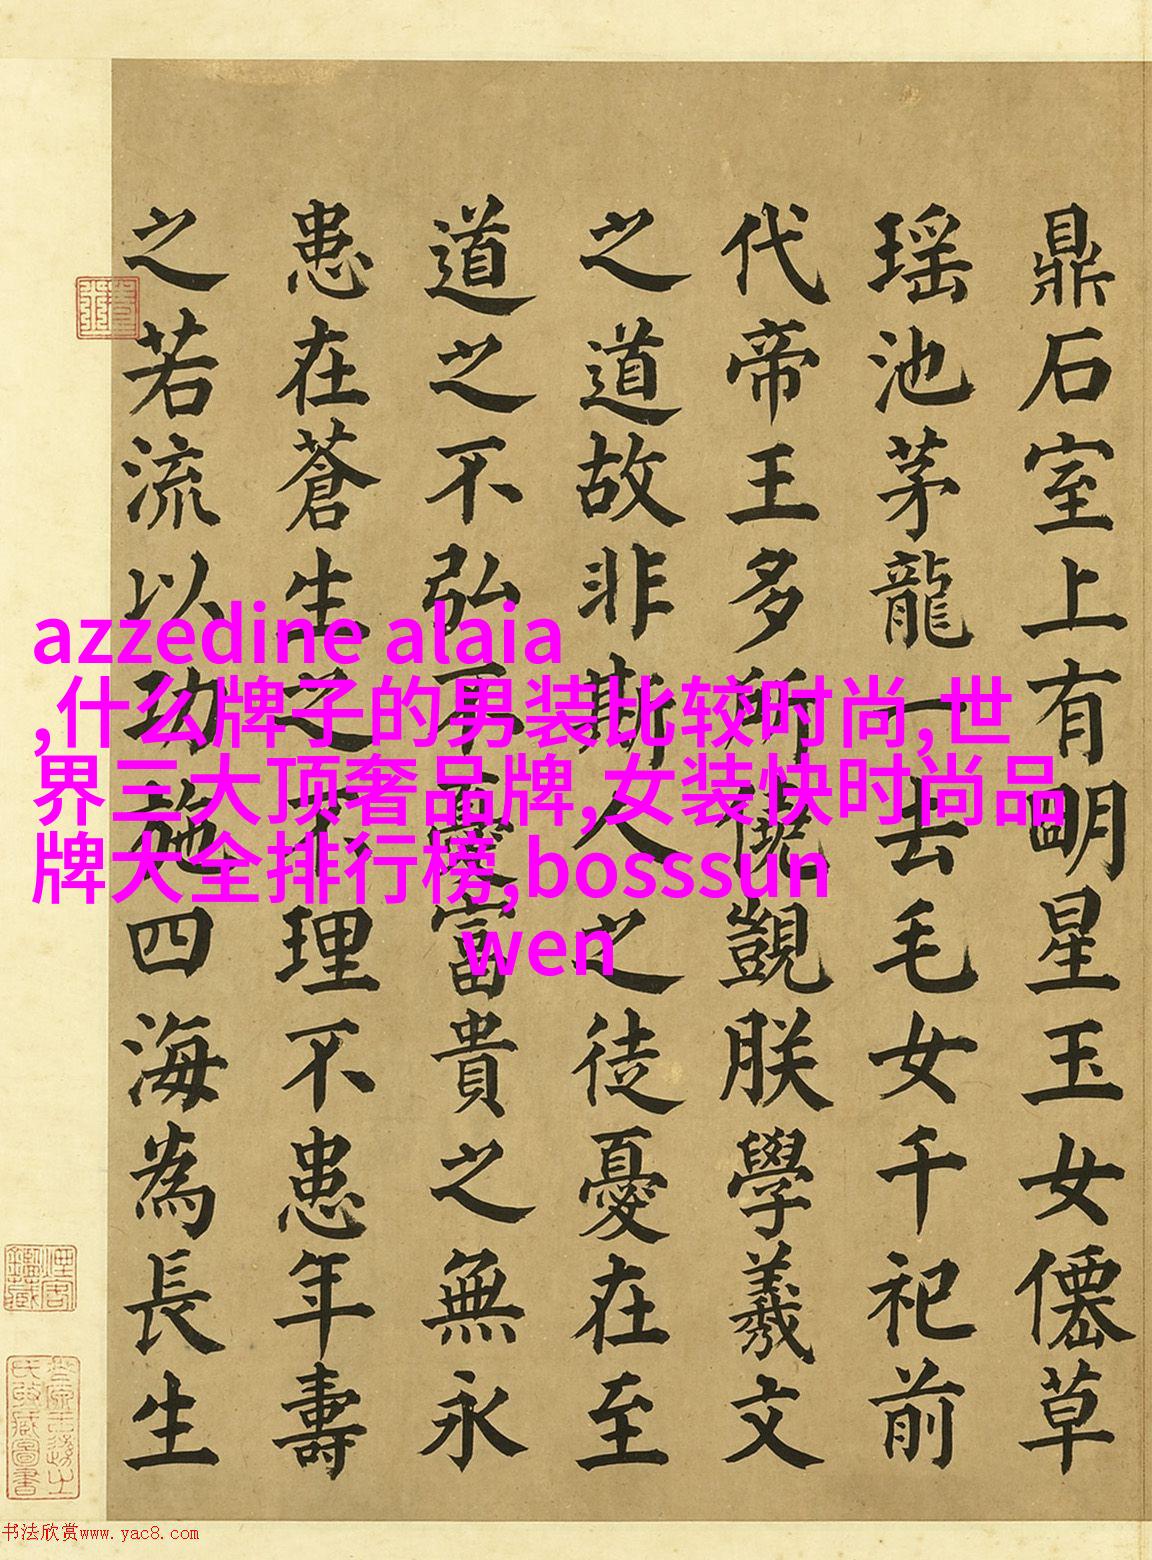 鼎石室上有明星玉女僊草
瑶池茅龍一去毛女千祀前
代帝王多所覬朕學羲文
之道故非斯人之徒憂在至
道之不弘不憂富貴之無永
患在蒼生之不理不患年壽
之若流以功施四海為長生
azzedine alaia
,什么牌子的男装比较时尚,世
界三大顶奢品牌,女装快时尚品
牌大全排行榜,bosssun
wen
书法欣赏www.yac8.com